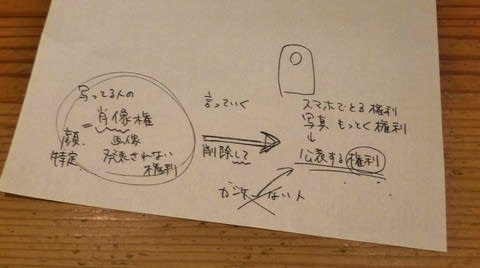 写ってる人の
=肖像権
顔.
特定
画像
発表されない
権利
言っていく
削除して
スマホでとる権利
写真 もってく権利
↓
公表する権利
ない人